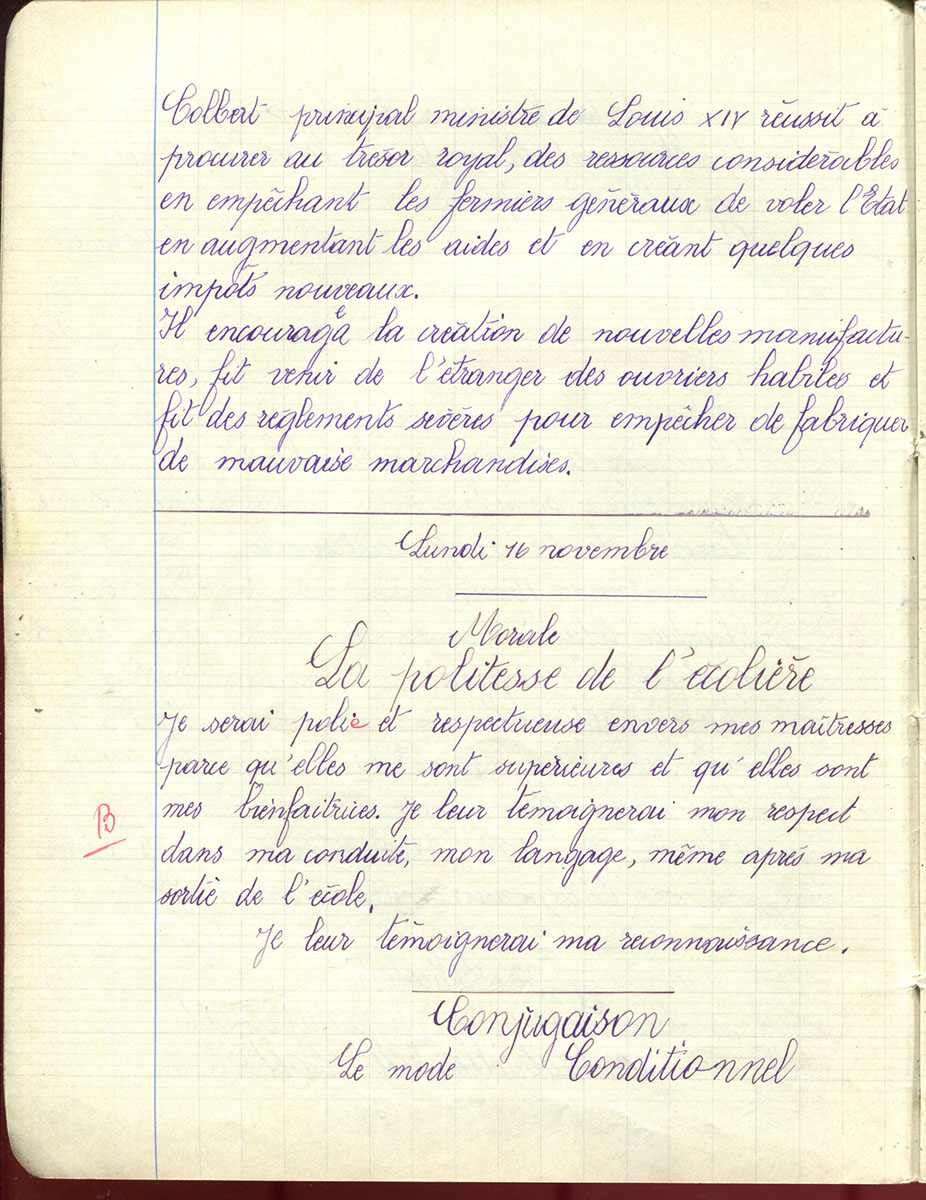 Colbert principal ministre de Louis XIV réussit à
procurer au trésor royal, des ressources considérables
en empêchant les fermiers généraux de voler l'Etat
en augmentant les aides et en créant quelques
impôts nouveaux.
Il encouragea la création de nouvelles manufactu-
res, fit venir de l'étranger des ouvriers habiles et
fit des règlements sévères pour empêcher de fabriquer
de mauvaise marchandises.
Lundi 16 novembre
Morale
La politesse de l'écolière
Je serai polie et respectueuse envers mes maîtresses
parce qu'elles me sont supérieures et qu'elles sont
mes bienfaitrices. Je leur témoignerai mon respect
B
dans ma conduite, mon langage, même après ma
sortie de l'école.
Je leur témoignerai ma reconnaissance.
Conjugaison
Le mode Conditionnel